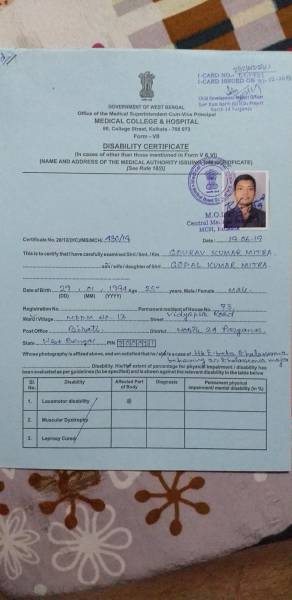 I-CARD NO.:
I-CARD ISSUED ON
Child Development Project Officer
GOVERNMENT OF WEST BENGAL
Office of the Medical Superintendent-Cum-Vice Principal
MEDICAL COLLEGE & HOSPITAL
88, College Street, Kolkata - 700 073
Form - VII
DISABILITY CERTIFICATE
(In cases of other than those mentioned in Form V & VI)
(NAME AND ADDRESS OF THE MEDICAL AUTHORITY ISSUING THE CERTIFICATE)
[See Rule 18(i)]
Certificate No.
Date : 19.06.19
This is certify that I have carefully examined Shri / Smt. / Km GOURAV KUMAR MITRA
son / wife / daughter of Shri GOPAL KUMAR MITRA
Date of Birth 29 01 1994 Age years, Male / Female Male
(DD) (MM) (YYYY)
Registration No. Permanent resident of House No. 73
Ward / Village Street Vidyapith Road
Post Office Birati District North 24 Parganas
State West Bengal PIN
Whose photograph is affixed above, and am satisfied that he / she is a case of
Disability. His/her extent of percentage physical impairment / disability has
been evaluated as per guidelines (to be specified) and is shown against the relevant disability in the table below
Sl. No. Disability Affected Part of Body Diagnosis Permanent physical impairment/ mental disability (in %)
1. Locomotor disability @
2. Muscular Dystrophy
3. Leprosy Cured